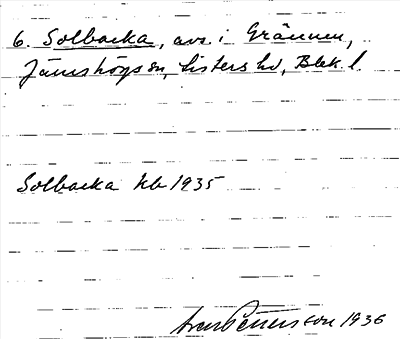 6. Solbacka, avs. i Grännum,
Jämshögs sn, Listers hd, Blek. l.
Solbacka kb 1935
Pettersson 1936